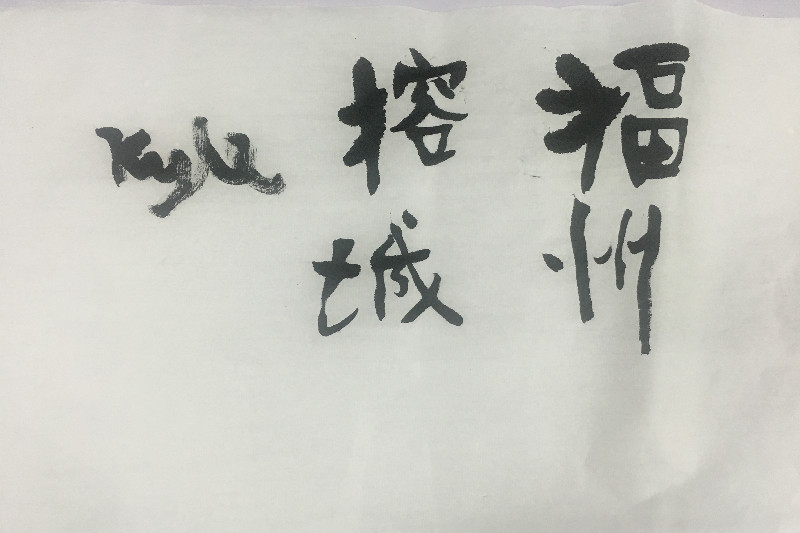 福州
榕城
Kyle